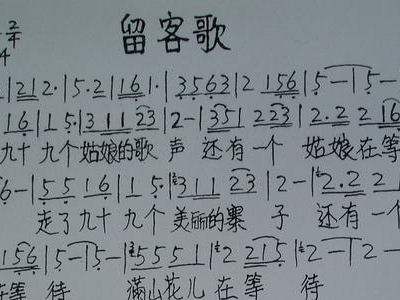 2/4
留客歌
|212·|5·2|161·|3563|2 156|5—|5—
16|1 5·|3 11 23|2—|351 223|2·2 2 16
九十 九个姑娘的歌 声 还有一个 姑娘在等
6—|5 5 16|1 5·|311 23|2—|2·2 2
走了九十 九个 美丽的寨 子 还有一个
156|5—|5—|5551|2 215|2—|2—
在等 待 满山花儿 在 等 待